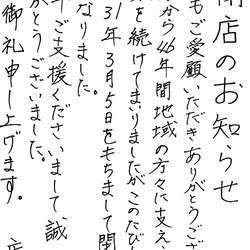 店のお知らせ
もご愛顧いただきありがとうござ
から46年間地域の方々に支え
を続けてまいりましたがこのたび
31年3月5日をもちまして閉
なりました。
ご支援くださいまして 誠
がとうございました。
御礼申し上げます。
店